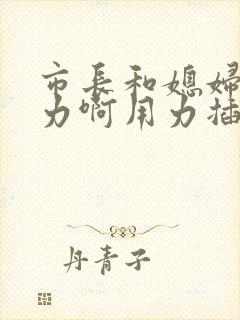 市长和媳妇
力啊用力插
丹青子